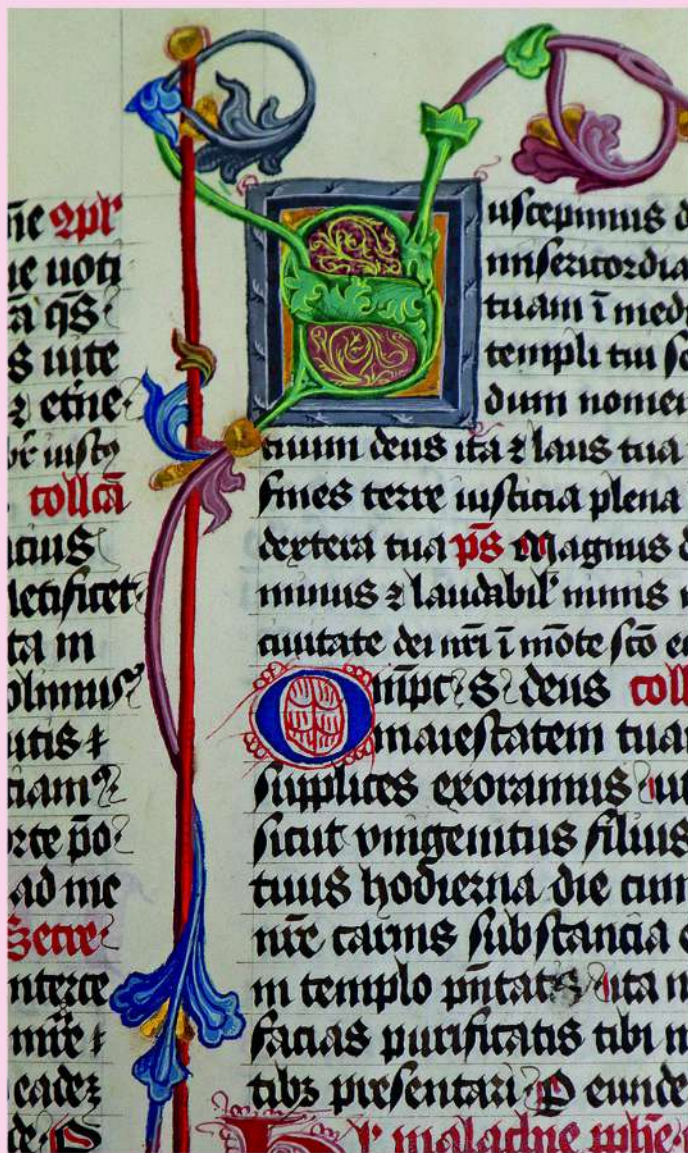 ne ꝯpl'
ie uoti
rā qs
s uite
⁊ etne
iusto
collcā
acius
letificet
ta in
olimus
utis ⁊
ciam
orte po
ad me
Secre
nterce
mire ⁊
eadez
de
Suscepimus d
misericordia
tuam ī medi
templi tui sc
dum nomen
tuum deus ita ⁊ laus tua
fines terre iusticia plena
dextera tua ps Magnus d
minus ⁊ laudabil' nimis
ciuitate dei nrī ī mōte scō e
Omīpc s deus coll
maiestatem tuam
supplices exoramus ut
sicut vnigenitus filius
tuus hodierna die cum
nrē carnis substancia
in templo pn̄tatꝰ ita n
facias purificatis tibi m
tibz presentari P eunde
malachie pphē